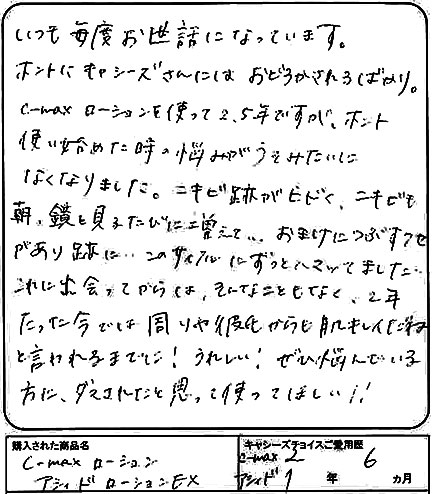 いつも毎度お世話になっています。
ホントにキャシーズさんにはおどろかされるばかり。
C-maxローションを使って2.5年ですが、ホント
使い始めた時の悩みがうそみたいに
なくなりました。ニキビ跡がヒドく、ニキビも
朝、鏡を見るたびに増えて… おまけにつぶすクセ
があり跡に… このサイクルにずっとハマってました…
これに出会ってからは、そんなこともなく、2年
たった今では周りや彼氏からも肌キレイだね
と言われるまでに！うれしい！ぜひ悩んでいる
方に、ダマされたと思って使ってほしい!!
購入された商品名
C-max ローション
アシィドローションEX
キャシーズチョイスご愛用歴
C-max 2 6
アシィド 1 年 ヵ月